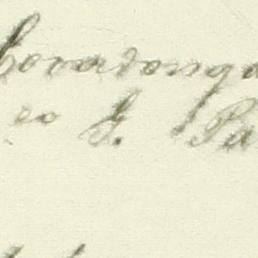 Covadonga
co S. Pa